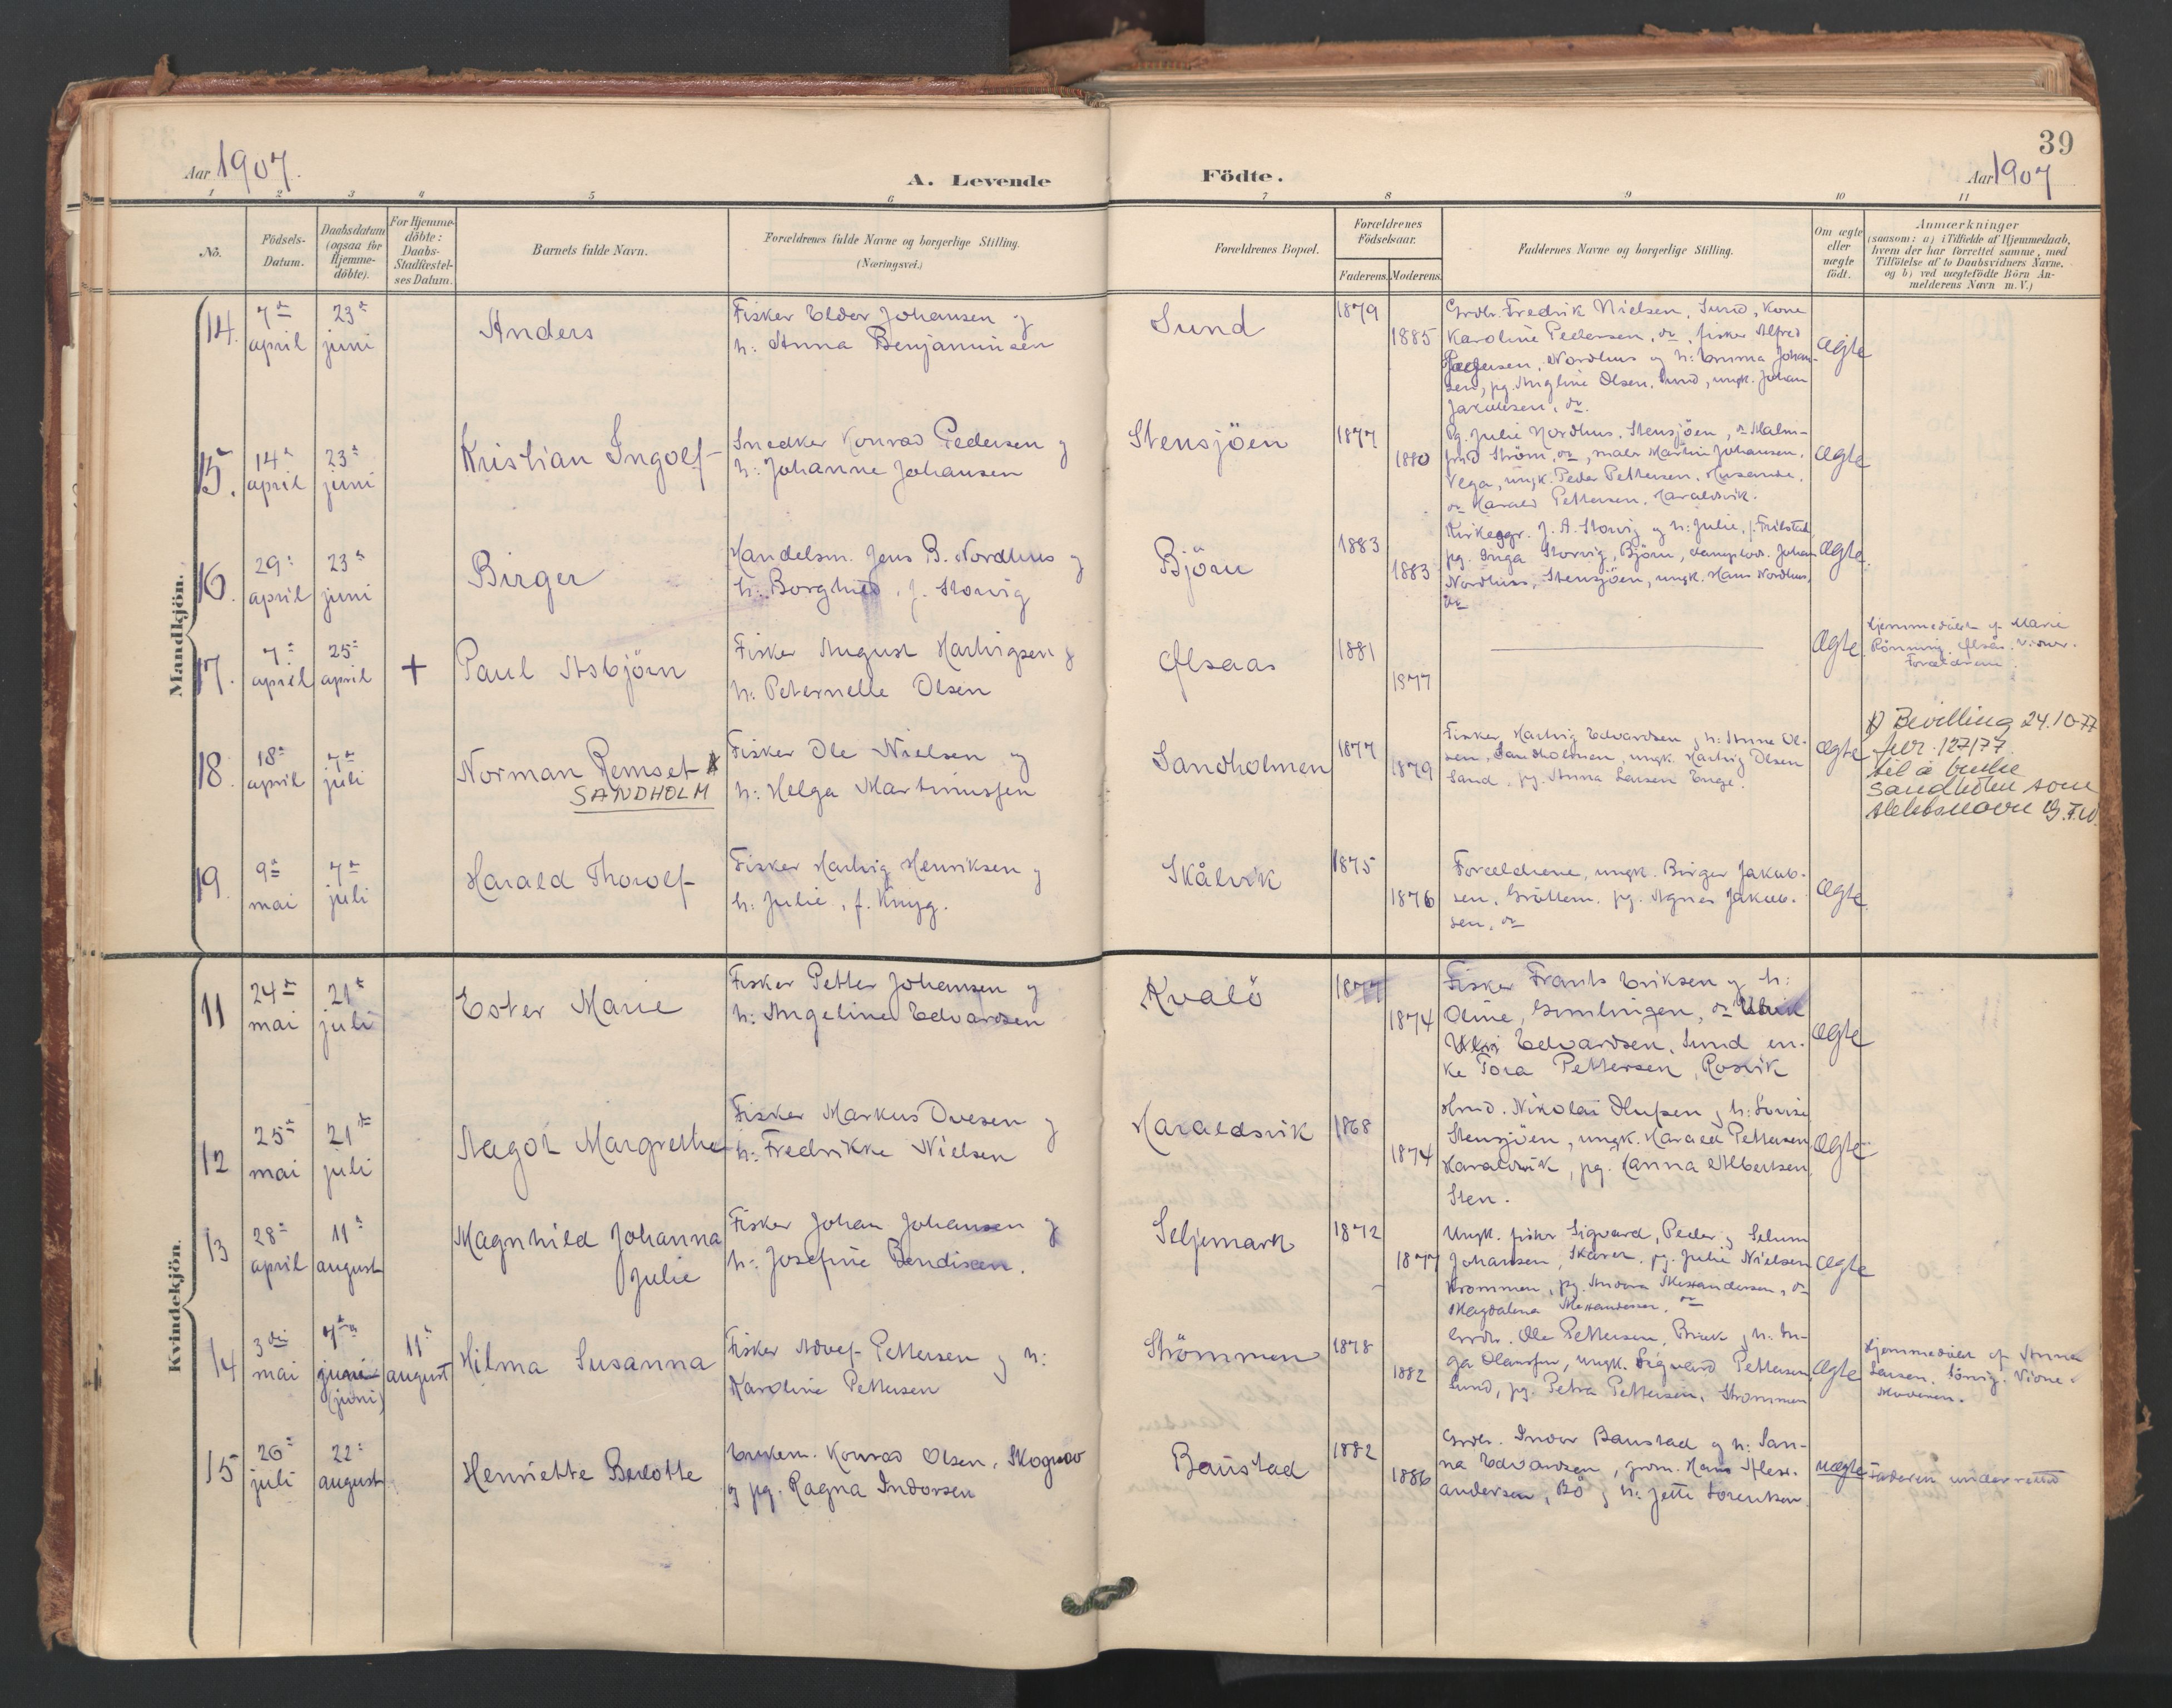 39
Aar 1907.
A. Levende
Födte.
Aar 1907
1 2 3 4 5 6 7 8 9 10 11
No.
Födsels-
Datum.
Daabsdatum
(ogsaa for
Hjemme-
döbte).
For Hjemme-
döbte:
Daabs-
Stadfæstel-
ses Datum.
Barnets fulde Navn.
Forældrenes fulde Navne og borgerlige Stilling.
(Næringsvei.)
Forældrenes Bopæl.
Forældrenes
Födselsaar.
Faderens. Moderens.
Faddernes Navne og borgerlige Stilling.
Om ægte
eller
uægte
födt.
Anmærkninger
(saasom: a) i Tilfælde af Hjemmedaab,
hvem der har forrettet samme, med
Tilföielse af to Daabsvidners Navne.
og b) ved uægtefödte Börn An-
melderens Navn m.V.)
Mandkjön.
14. 7de april 23de juni
Anders
Fisker Elder Johansen og
h: Anna Benjaminsen
Sund
1879
1885
Grdbr. Fredrik Nielsen, Sund, Kone
Karoline Pedersen, do, fisker Alfred
Pedersen, Nordhus og h: Emma Johan-
sen, pg. Angline Olsen, Sund, ungk. Johan
Jakobsen, do.
ægte
15. 14de april 23de juni
Kristian Ingolf
Snedker Konrad Pedersen og
h: Johanne Johansen
Stensjöen
1877
1880
Pg. Julie Nordhus, Stensjöen, do Malm-
frid Ström, do, maler Martin Johansen,
Vega, ungk. Peder Pettersen,
do Harald Pettersen, Haraldsvik.
ægte
16. 29de april 23de juni
Birger
Handelsm. Jens B. Nordhus og
h: Borghild, f. Storvig
Björn
1883
1883
Kirkesgr. J. A. Storvig og h: Julie, f. Fribstad,
pg. Inga Storvig, Björn, Johan
Nordhuus, Stensjöen, ungk. Hans Nordhus,
do
ægte.
17. 7de april 25de april +
Paul Asbjörn
Fisker August Hartvigsen og
h: Peternelle Olsen
Alsaas
1881
1877
ægte.
Hjemmedöbt af Marie
Rönning, Alsås. Vidner:
Forældrene.
18. 18de april 7de juli
Norman Remset
SANDHOLM
Fisker Ole Nielsen og
h: Helga Martinussen
Sandholmen
1877
1879
Fisker Hartvig Edvardsen og h: Anne Ol-
sen, Sandholmen, ungk. Hartvig Olsen
Sand, pg. Anna Larsen Enge.
ægte
Bevilling 24.10-77
jnr. 127/77
til å bruke
Sandholm som
slektsnavn
19. 9de mai 7de juli
Harald Thorolf
Fisker Hartvig Henriksen og
h: Julie, f. Kryg.
Skålvik
1875
1876
Forældrene, ungk. Birger Jakob-
sen, Gröttem. pg. Agnes Jakob-
sen, do
ægte.
Kvindekjön.
11 24de mai 21de juli
Ester Marie
Fisker Petter Johansen og
h: Angeline Edvardsen
Kvalö
1877
1874
Fisker Frants Eriksen og h:
Oline, do
Edvardsen, Sund en-
ke Tora Pettersen, Rosvik
ægte
12 25de mai 21de juli
Aagot Margrethe
Fisker Markus Ovesen og
h: Fredrikke Nielsen
Haraldsvik
1868
1874
Hmd. Nikolai Olufsen og h: Lovise
Stensjöen, ungk. Harald Pettersen,
Haraldsvik, pg. Hanna Albertsen,
Sten.
ægte
13 28de april 11te august
Magnhild Johanna
Julie
Fisker Johan Johansen og
h: Josefine Bendixen.
Seljemark
1872
1877
Ungk. fisker Sigvard, Peder og Selum
Johansen, Skaren, pg. Julie Nielsen
Strommen, pg. Andora Alexandersen, do
Magdalena Alexandersen, do
ægte
14 3die mai 7de juni (juni) 11te august
Hilma Susanna
Fisker Adolf Pettersen og h:
Karoline Pettersen
Strömmen
1878
1882
Grdbr. Ole Pettersen, og h: In-
ga Olaussen, ungk. Sigvard Pettersen,
Sund, pg. Petra Pettersen, Strommen
ægte
Hjemmedöbt af Anna
Larsen, Sörvig. Vidne:
Moderen.
15 26de juli 22de august
Henriette Berlotte
Enkem. Konrad Olsen,
og pg. Ragna Indorsen
Baustad
1882
1886
Grdbr. Indor Baustad og h: San-
na Edvardsen, grdm. Hans Alex-
andersen, Bö og h: Jette Lorentsen
uægte
Faderen underrettet